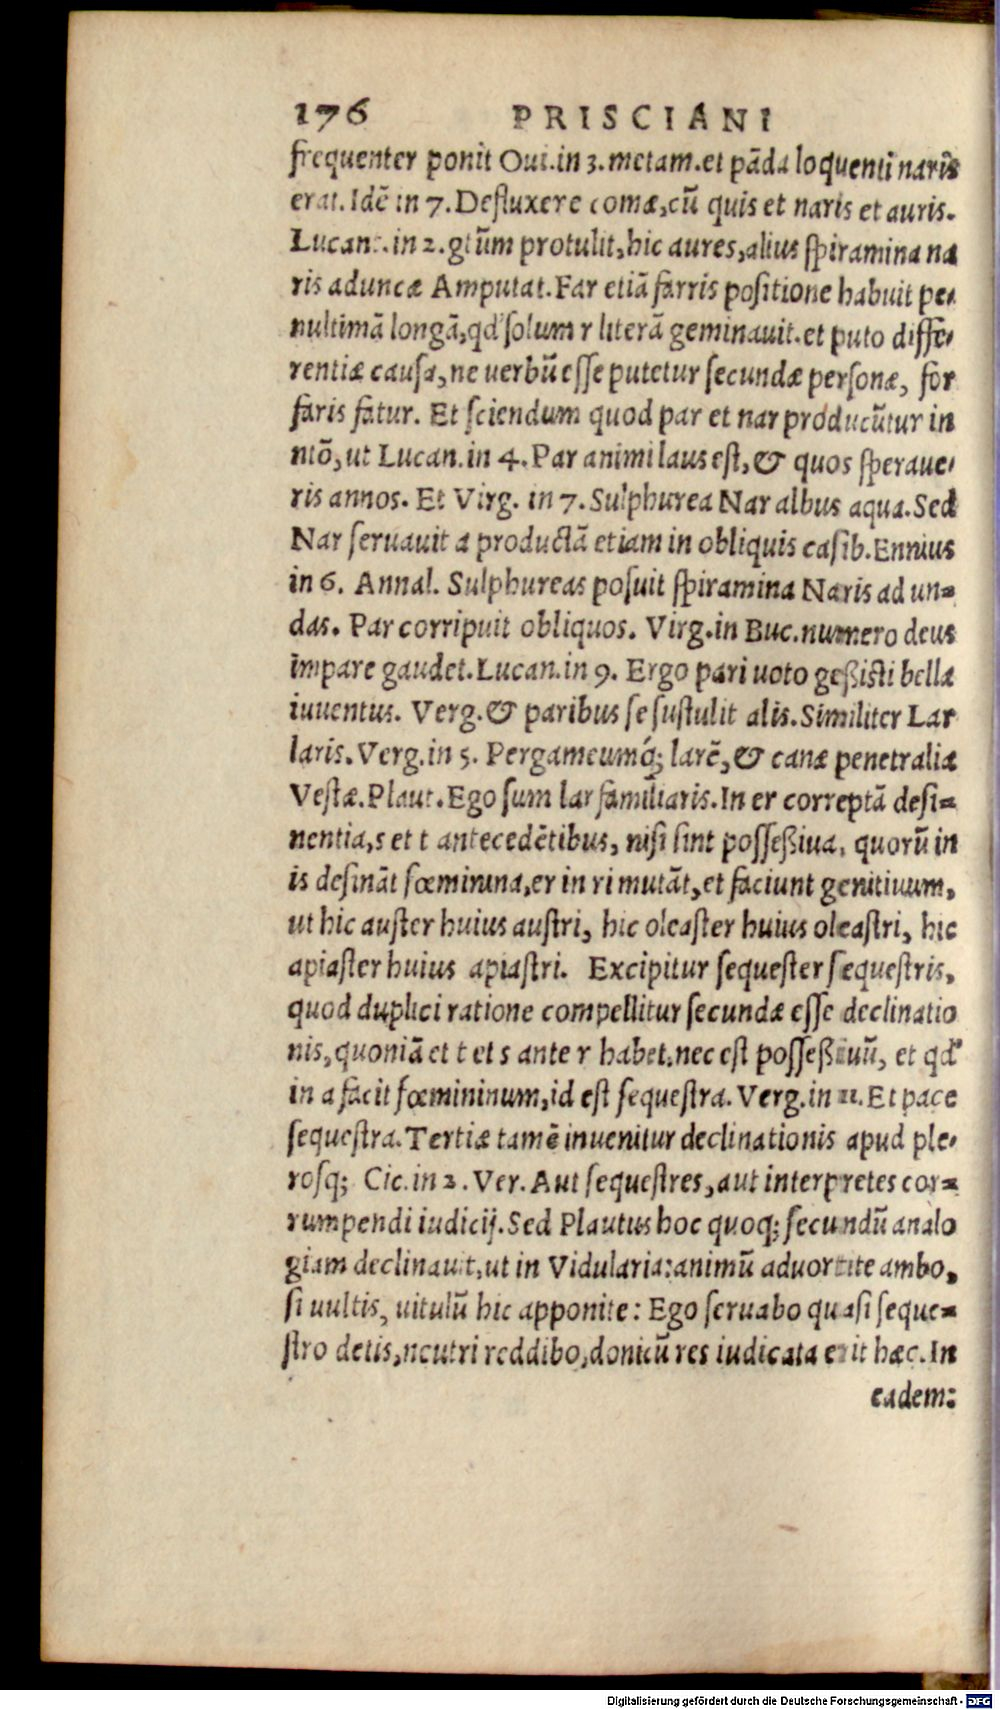 176 PRISCIANI
frequenter ponit Oui.in 3.metam.et pāda loquenti naris
erat.Idē in 7.Defluxere comæ,cū quis et naris et auris.
Lucan:.in 2.gtūm protulit,hic aures,alius spiramina na
ris aduncæ Amputat.Far etiā farris positione habuit pe-
nultimā longā,qd' solum r literā geminauit.et puto diffe-
rentiæ causa,ne uerbū esse putetur secundæ personæ, for
faris fatur. Et sciendum quod par et nar producūtur in
ntō,ut Lucan.in 4.Par animi laus est,& quos speraue-
ris annos. Et Virg. in 7.Sulphurea Nar albus aqua.Sed
Nar seruauit a productā etiam in obliquis casib.Ennius
in 6. Annal. Sulphureas posuit spiramina Naris ad un=
das. Par corripuit obliquos. Virg.in Buc.numero deus
impare gaudet.Lucan.in 9. Ergo pari uoto geßisti bella
iuuentus. Verg.& paribus se sustulit alis.Similiter Lar
laris.Verg.in 5. Pergameumq́; larē,& canæ penetralia
Vestæ.Plaut.Ego sum lar familiaris.In er correptā desi=
nentia,s et t antecedētibus, nisi sint posseßiua, quorū in
is desināt fœminina,er in ri mutāt,et faciunt genitiuum,
ut hic auster huius austri, hic oleaster huius oleastri, hic
apiaster huius apiastri. Excipitur sequester sequestris,
quod duplici ratione compellitur secundæ esse declinatio
nis,quoniā et t et s ante r habet.nec est posseßiuū, et qd'
in a facit fœmininum,id est sequestra. Verg.in 11.Et pace
sequestra.Tertiæ tamē inuenitur declinationis apud ple-
rosq; Cic.in 2.Ver.Aut sequestres,aut interpretes cor=
rumpendi iudicij.Sed Plautus hoc quoq; secundū analo
giam declinauit,ut in Vidularia:animū aduortite ambo,
si uultis, uitulū hic apponite: Ego seruabo quasi seque=
stro detis,neutri reddibo,donicū res iudicata erit hæc.In
eadem:
Digitalisierung gefördert durch die Deutsche Forschungsgemeinschaft - DFG